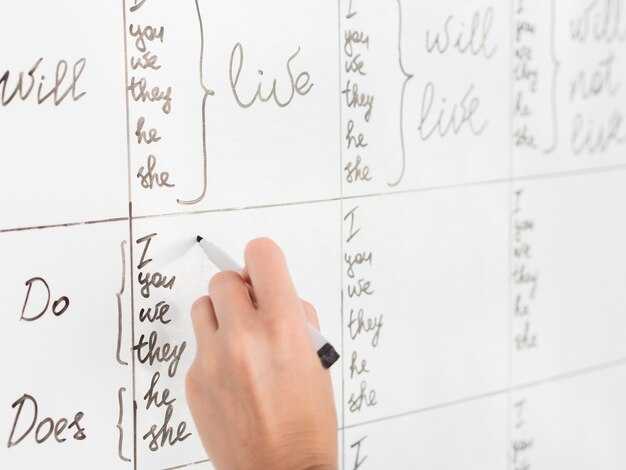 Will
I
you
we
they
he
she
live
I
you
we
they
he
she
will
live
I
you
we
they
he
she
will
not
live
Do
Does
I
you
we
they
he
she
I
you
we
they
he
she
I
you
we
they
he
she
I
I
you